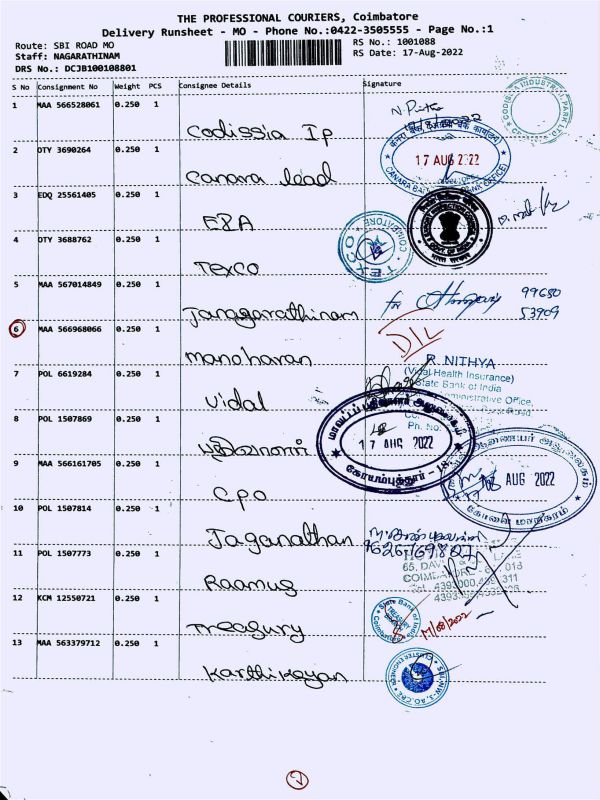 THE PROFESSIONAL COURIERS, Coimbatore
Delivery Runsheet - MO - Phone No.:0422-3505555 - Page No.:1
Route: SBI ROAD MO
RS No.: 1001088
Staff: NAGARATHINAM
RS Date: 17-Aug-2022
DRS No.: DCJB100108801
S No Consignment No Weight PCS Consignee Details Signature
1 MAA 566528061 0.250 1
Codissia Ip
2 OTY 3690264 0.250 1
17 AUG 2022
Canara lead
3 EDQ 25561405 0.250 1
4 OTY 3688762 0.250 1
TEXCO
COIMBATORE
Texco
5 MAA 567014849 0.250 1
for 99680
53909
Janagarathinam
6 MAA 566968066 0.250 1
DIL
manoharan
R. NITHYA
(Vidal Health Insurance)
State Bank of India
Administrative Office,
7 POL 6619284 0.250 1
Vidal
Ph. No:
8 POL 1507869 0.250 1
மாவட்டப் பதிவாளர் அலுவலகம்
17 AUG 2022
கோயம்புத்தூர் - 18
பதிவாளர்
9 MAA 566161705 0.250 1
AUG 2022
CPO
10 POL 1507814 0.250 1
Jaganathan
9626169827
11 POL 1507773 0.250 1
65, DAV
Raamus
12 KCM 12550721 0.250 1
State Bank of
Treasury
13 MAA 563379712 0.250 1
Karthikayan